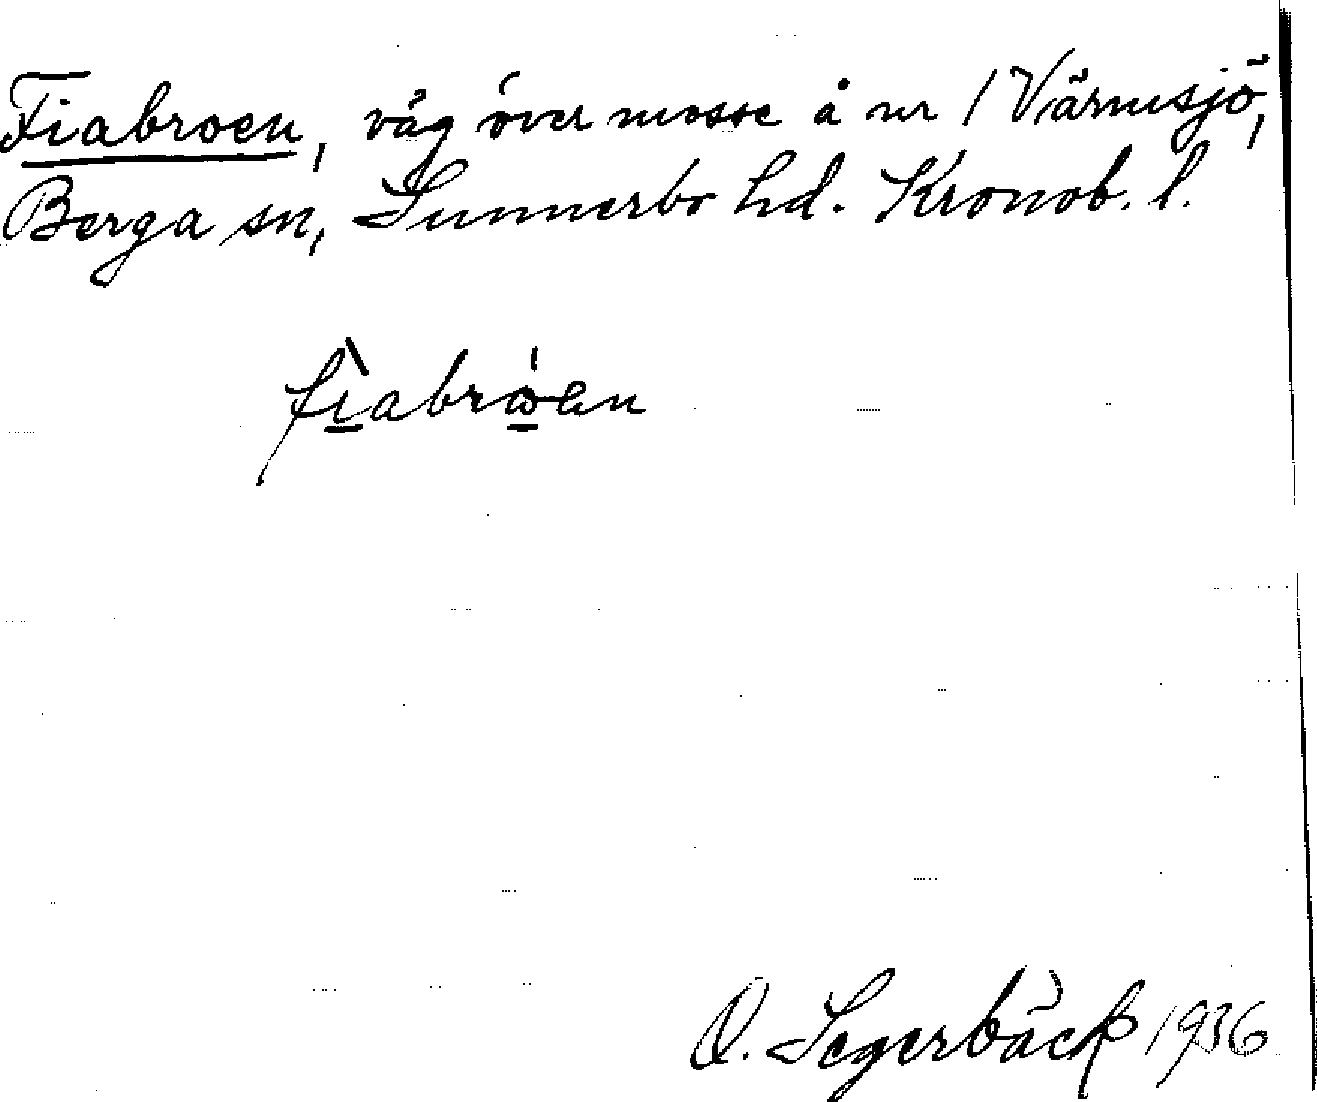 Fiabroen, väg över mosse å nr 1 Värnsjö,
Berga sn, Sunnerbo hd. Kronob. l.
fìabrόen
O. Segerbäck 1936